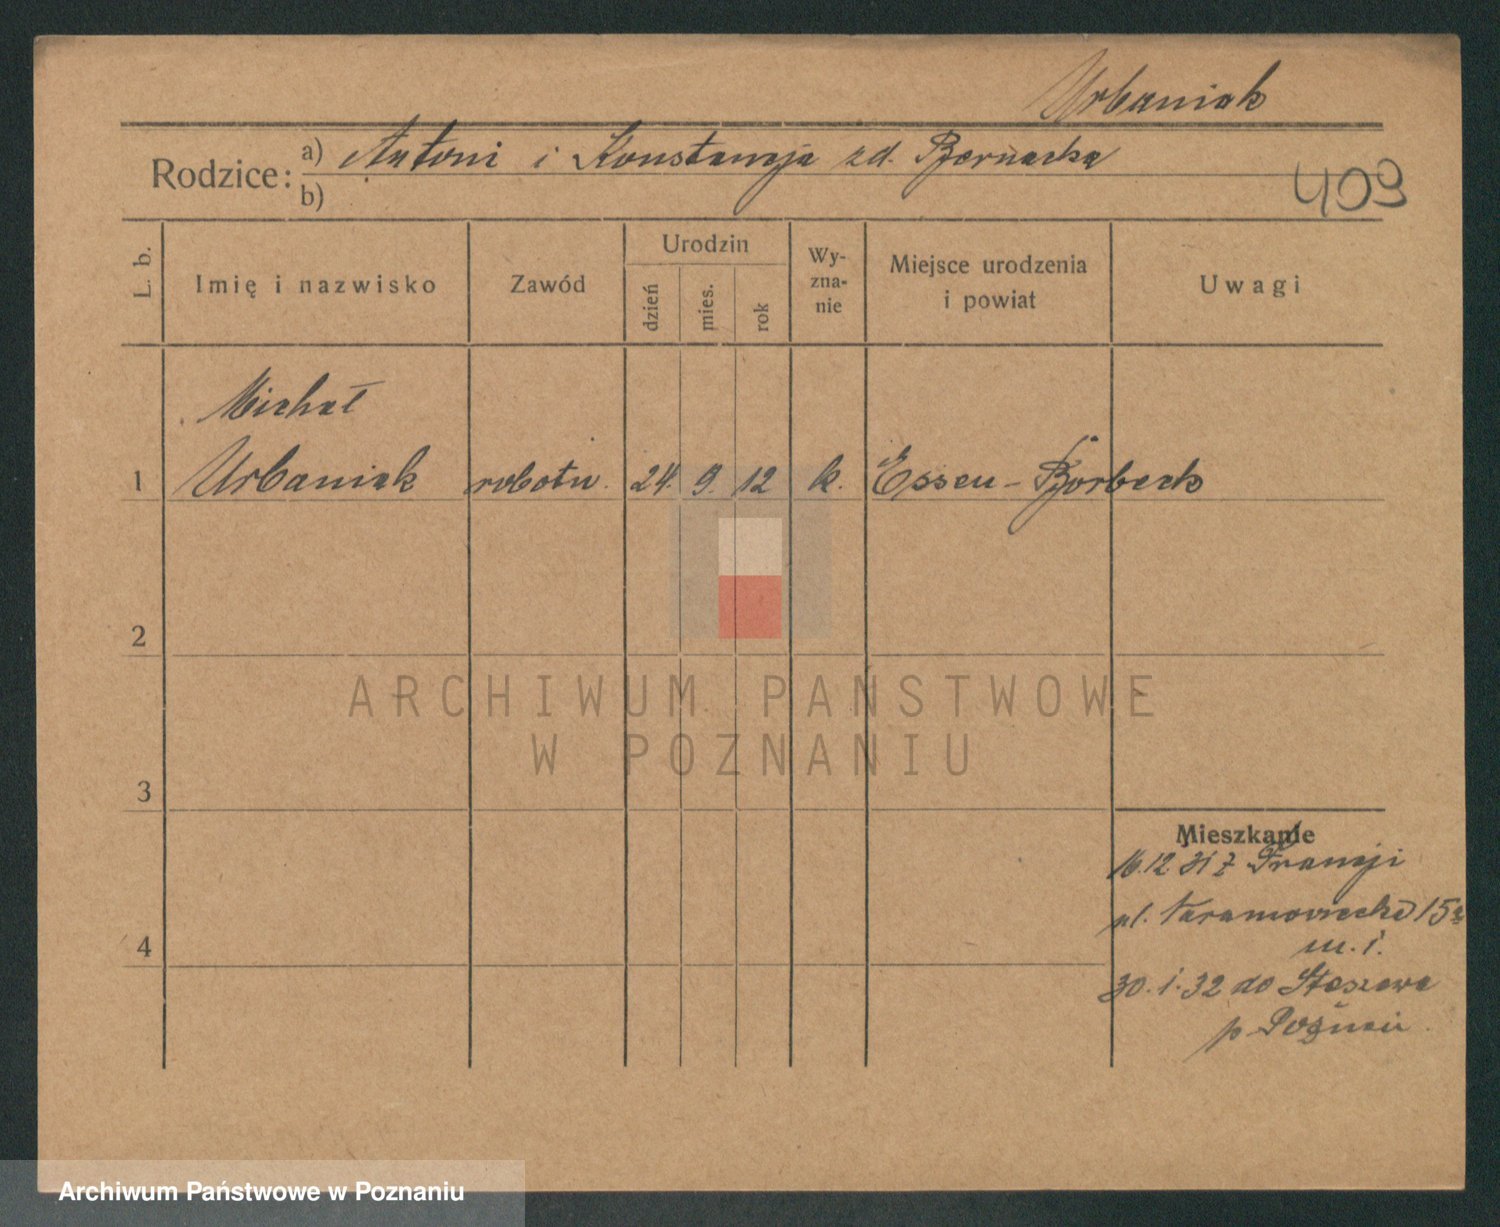 Urbaniak
Rodzice: a) Antoni i Konstancja zd. Biernacka
b)
409
L. b.
Imię i nazwisko
Zawód
Urodzin
dzień
mies.
rok
Wy-
zna-
nie
Miejsce urodzenia
i powiat
Uwagi
Michał
1 Urbaniak robotn. 24. 9. 12 k. Essen - Borbeck
2
ARCHIWUM PAŃSTWOWE
W POZNANIU
3
Mieszkanie
16.12 31 z Francji
ul. 15a
m. 1.
4
30.1.32 do Stęszewa
p Poznań
Archiwum Państwowe w Poznaniu